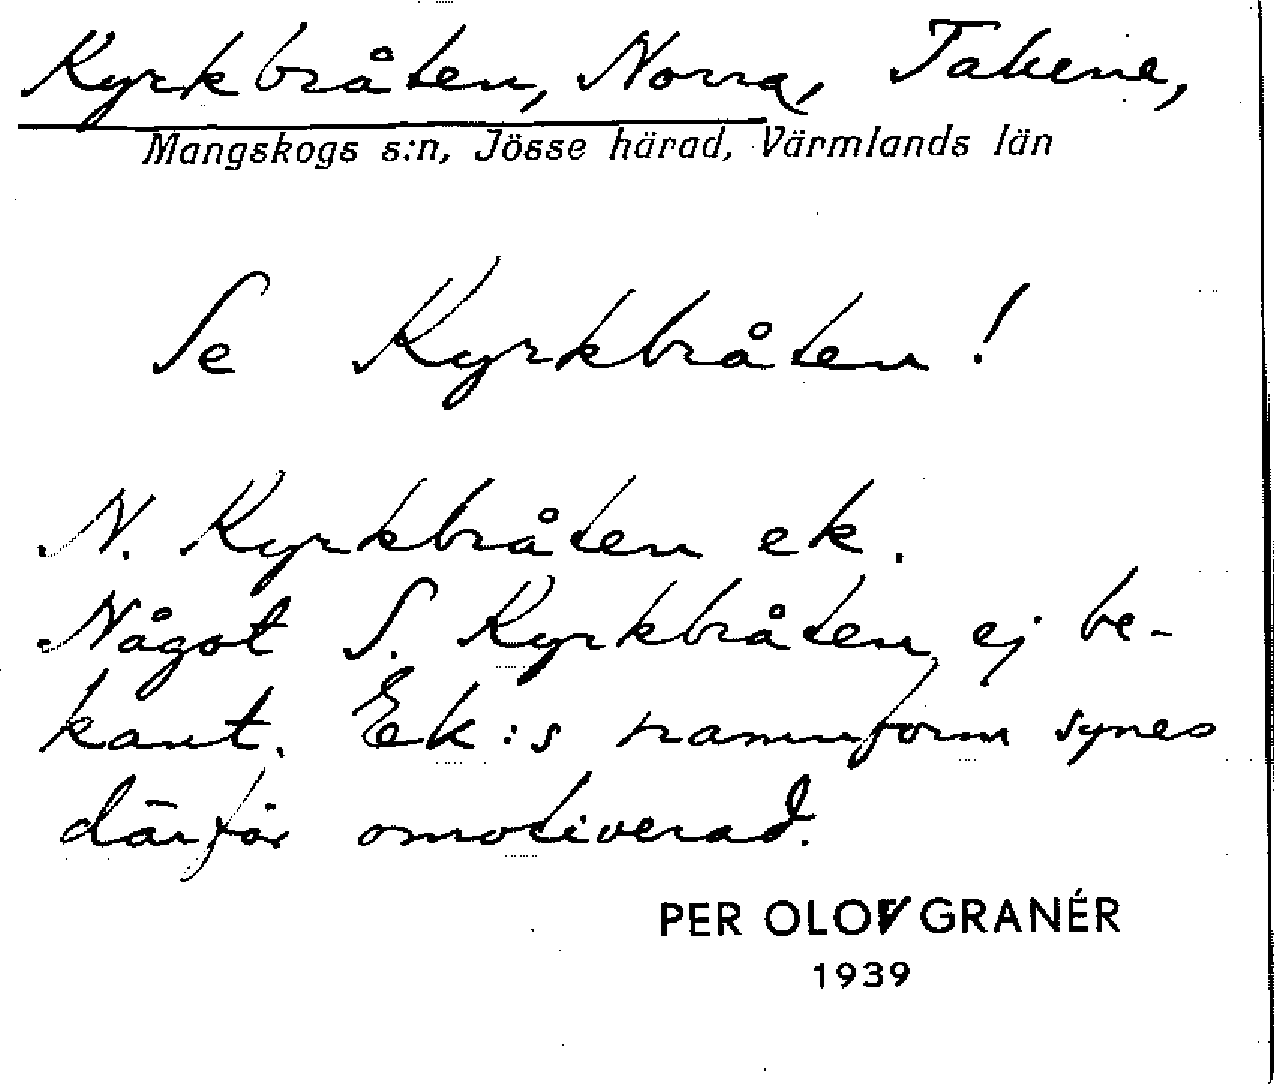 Kyrkbråten, Norra, Takene,
Mangskogs s:n, Jösse härad, Värmlands län
Se Kyrkbråten!
N. Kyrkbråten ek.
Något S. Kyrkbråten ej be-
kant. Ek:s namnform synes
därför omotiverad.
PER OLOV GRANÉR
1939